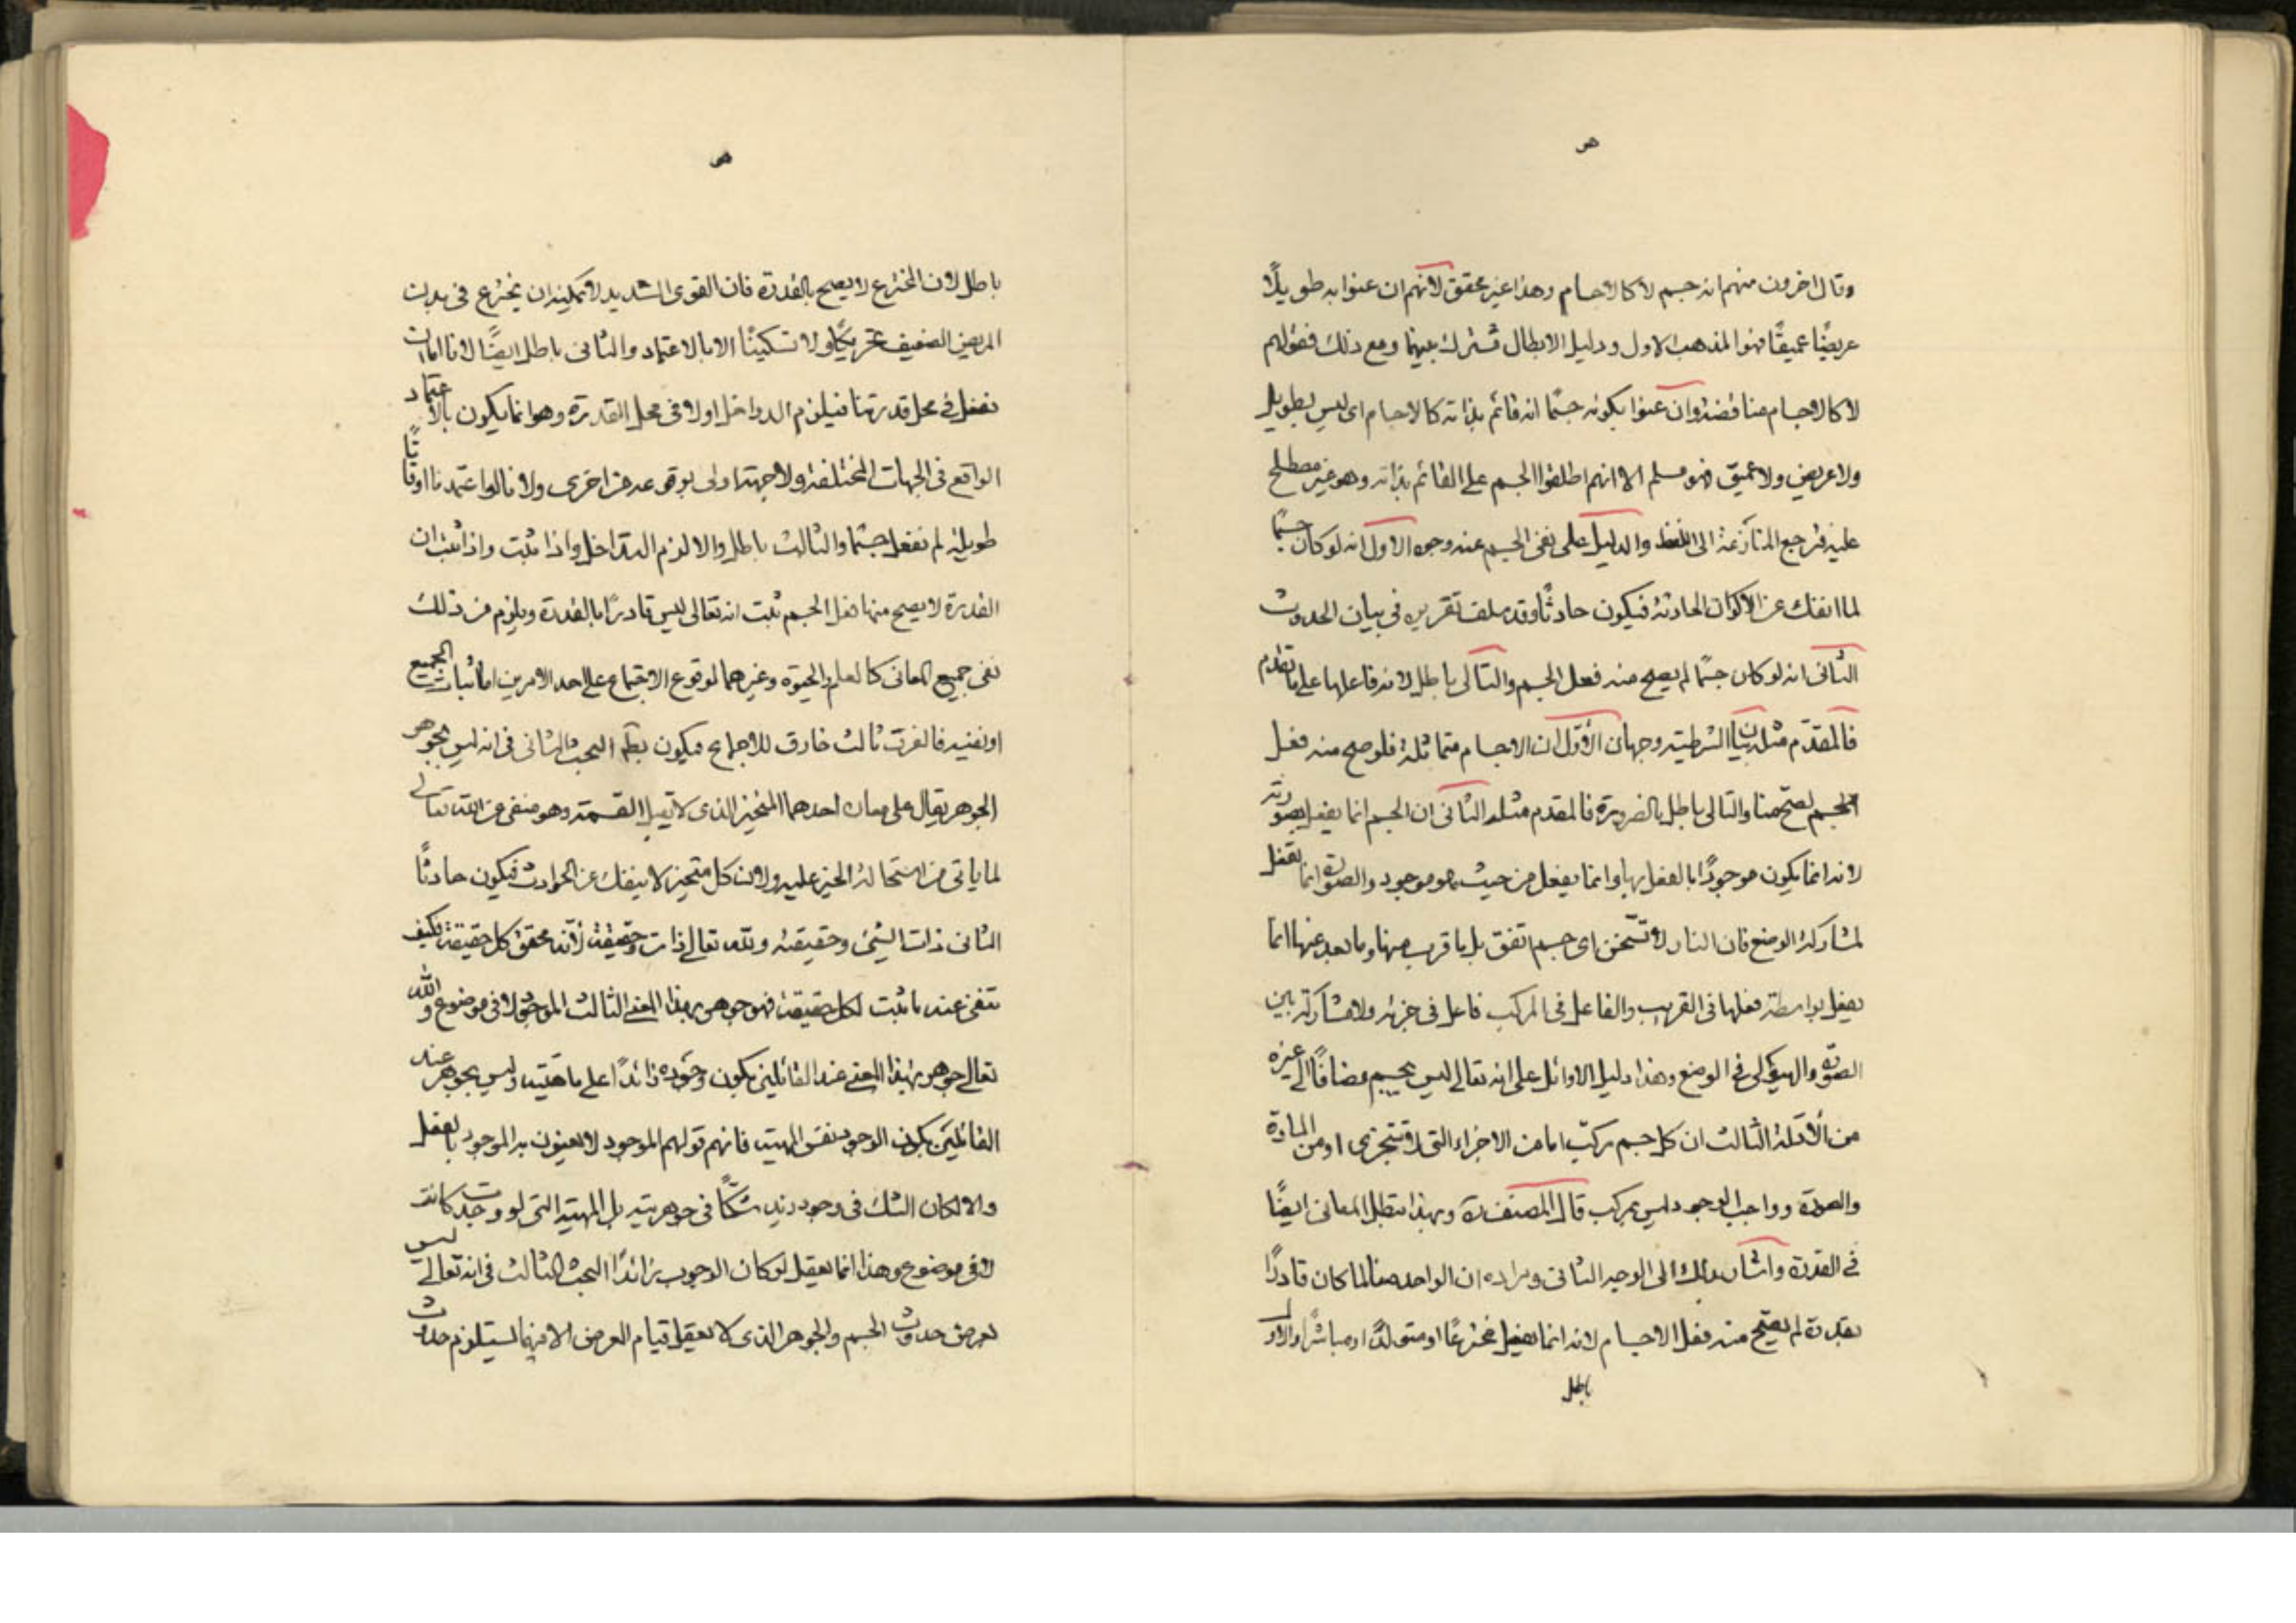 وقال اخرون منهم انه جسم لا كالاجسام وهذا غير محقق لانهم ان عنوا به طويلًا
عريضًا عميقًا فهو المذهب الاول ودليل الابطال مشترك بينهما ومع ذلك فقولهم
لا كالاجسام مناقضة وان عنوا بكونه جسمًا انه قائم بذاته كالاجسام اى ليس بطويل
ولا عريض ولا عميق فهو مسلم الا انهم اطلقوا الجسم على القائم بذاته وهو غير مصطلح
عليه فترجع المنازعة الى اللفظ والدليل على نفى الجسم عنه وجوه الاول انه لو كان جسمًا
لما انفك عن الاكوان الحادثة فيكون حادثًا وقد سلف تقريره فى بيان الحدوث
الثانى انه لو كان جسمًا لم يصح منه فعل الجسم والتالى باطل لانه فاعلها على ما تقدم
فالمقدّم مثله بيان الشرطية وجهان الأوّل ان الاجسام متماثلة فلو صح منه فعل
الجسم لصح منا والتالى باطل بالضرورة فالمقدم مثله الثانى ان الجسم انما يفعل بصورته
لانه انما يكون موجودًا بالفعل بها وانما يفعل من حيث هو موجود والصورة انما تفعل
لمشاركة الوضع فان النار لا تسخن اى جسم اتفق بل ما قرب منها وما بعد عنها انما
يفعل بواسطة فعلها فى القريب والفاعل فى المركب فاعل فى جزئه ولا مشاركة بين
الصورة والهيولى فى الوضع وهذا دليل الاوائل على انه تعالى ليس بجسم مضافًا الى غيره
من الأدلة الثالث ان كل جسم مركّب اما من الاجزاء التى لا تتجزى او من المادة
والصورة وواجب الوجود ليس بمركب قال المصنف ره وبهذا تبطل المعانى ايضًا
فى القدرة واشار بذلك الى الوجه الثانى ومراده ان الواحد منا لما كان قادرًا
بقدرة لم يصح منه فعل الاجسام لانه انما يفعل مخترعًا او متولدًا او مباشرًا والاول
باطل
باطل لان المخترع لا يصح بالقدرة فان القوى الشديد لا يمكنه ان يخترع فى بدن
المريض الضعيف تحريكًا ولا تسكينًا الا بالاعتماد والثانى باطل ايضًا لانا اما ان
نفعل فى محل قدرتنا فيلزم التداخل او لا فى محل القدرة وهو انما يكون بالاعتماد
الواقع فى الجهات المختلفة ولا جهة اولى بوقوعه من اخرى ولانا لو اعتمدنا اوقاتًا
طويلة لم نفعل جسمًا والثالث باطل والا لزم التداخل واذا ثبت واذا ثبت ان
القدرة لا يصح منها فعل الجسم ثبت انه تعالى ليس قادرًا بالقدرة ويلزم من ذلك
نفى جميع المعانى كالعلم والحيوة وغيرهما لوقوع الاجماع على احد الامرين اما ثبات الجميع
او نفيه فالفرق ثالث خارق للاجماع فيكون بط البحث الثانى فى انه ليس بجوهر
الجوهر يقال على معان احدهما المتحيز الذى لا يقبل القسمة وهو منفى عن الله تعالى
لما ياتى من استحالة الحيز عليه ولان كل متحيز لا ينفك عن الحوادث فيكون حادثًا
الثانى ذات الشىء وحقيقته ولله تعالى ذات وحقيقة لأنه محقق كل حقيقة فكيف
تنفى عنه ما ثبت لكل حقيقة فهو جوهر بهذا المعنى الثالث الموجود لا فى موضوع والله
تعالى جوهر بهذا المعنى عند القائلين بكون وجوده زائدًا على ماهيته وليس بجوهر عند
القائلين بكون الوجود نفس المهية فانهم قولهم الموجود لا يعنون به الموجود بالفعل
والا لكان الشك فى وجود زيد شكًّا فى جوهريته بل المهية التى لو وجدت كانت
لا فى موضوع وهذا انما يعقل لو كان الوجوب زائدًا البحث الثالث فى انه تعالى ليس
بعرض حدوث الجسم والجوهر الذى لا يعقل قيام العرض الا فيهما يستلزم حدوث